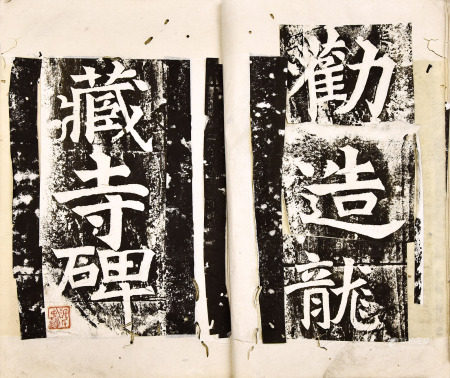 勸造龍
藏寺碑